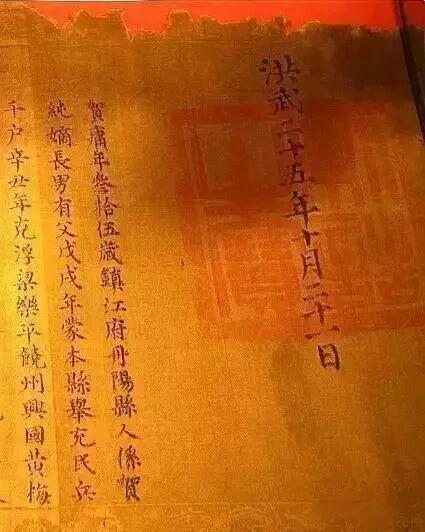 洪武二十五年十月二十一日
賀庸年叁拾伍歲鎮江府丹陽縣人係賀
純嫡長男有父戊戌年蒙本縣舉充民兵
千户辛丑年克浮梁樂平饒州興國黃梅